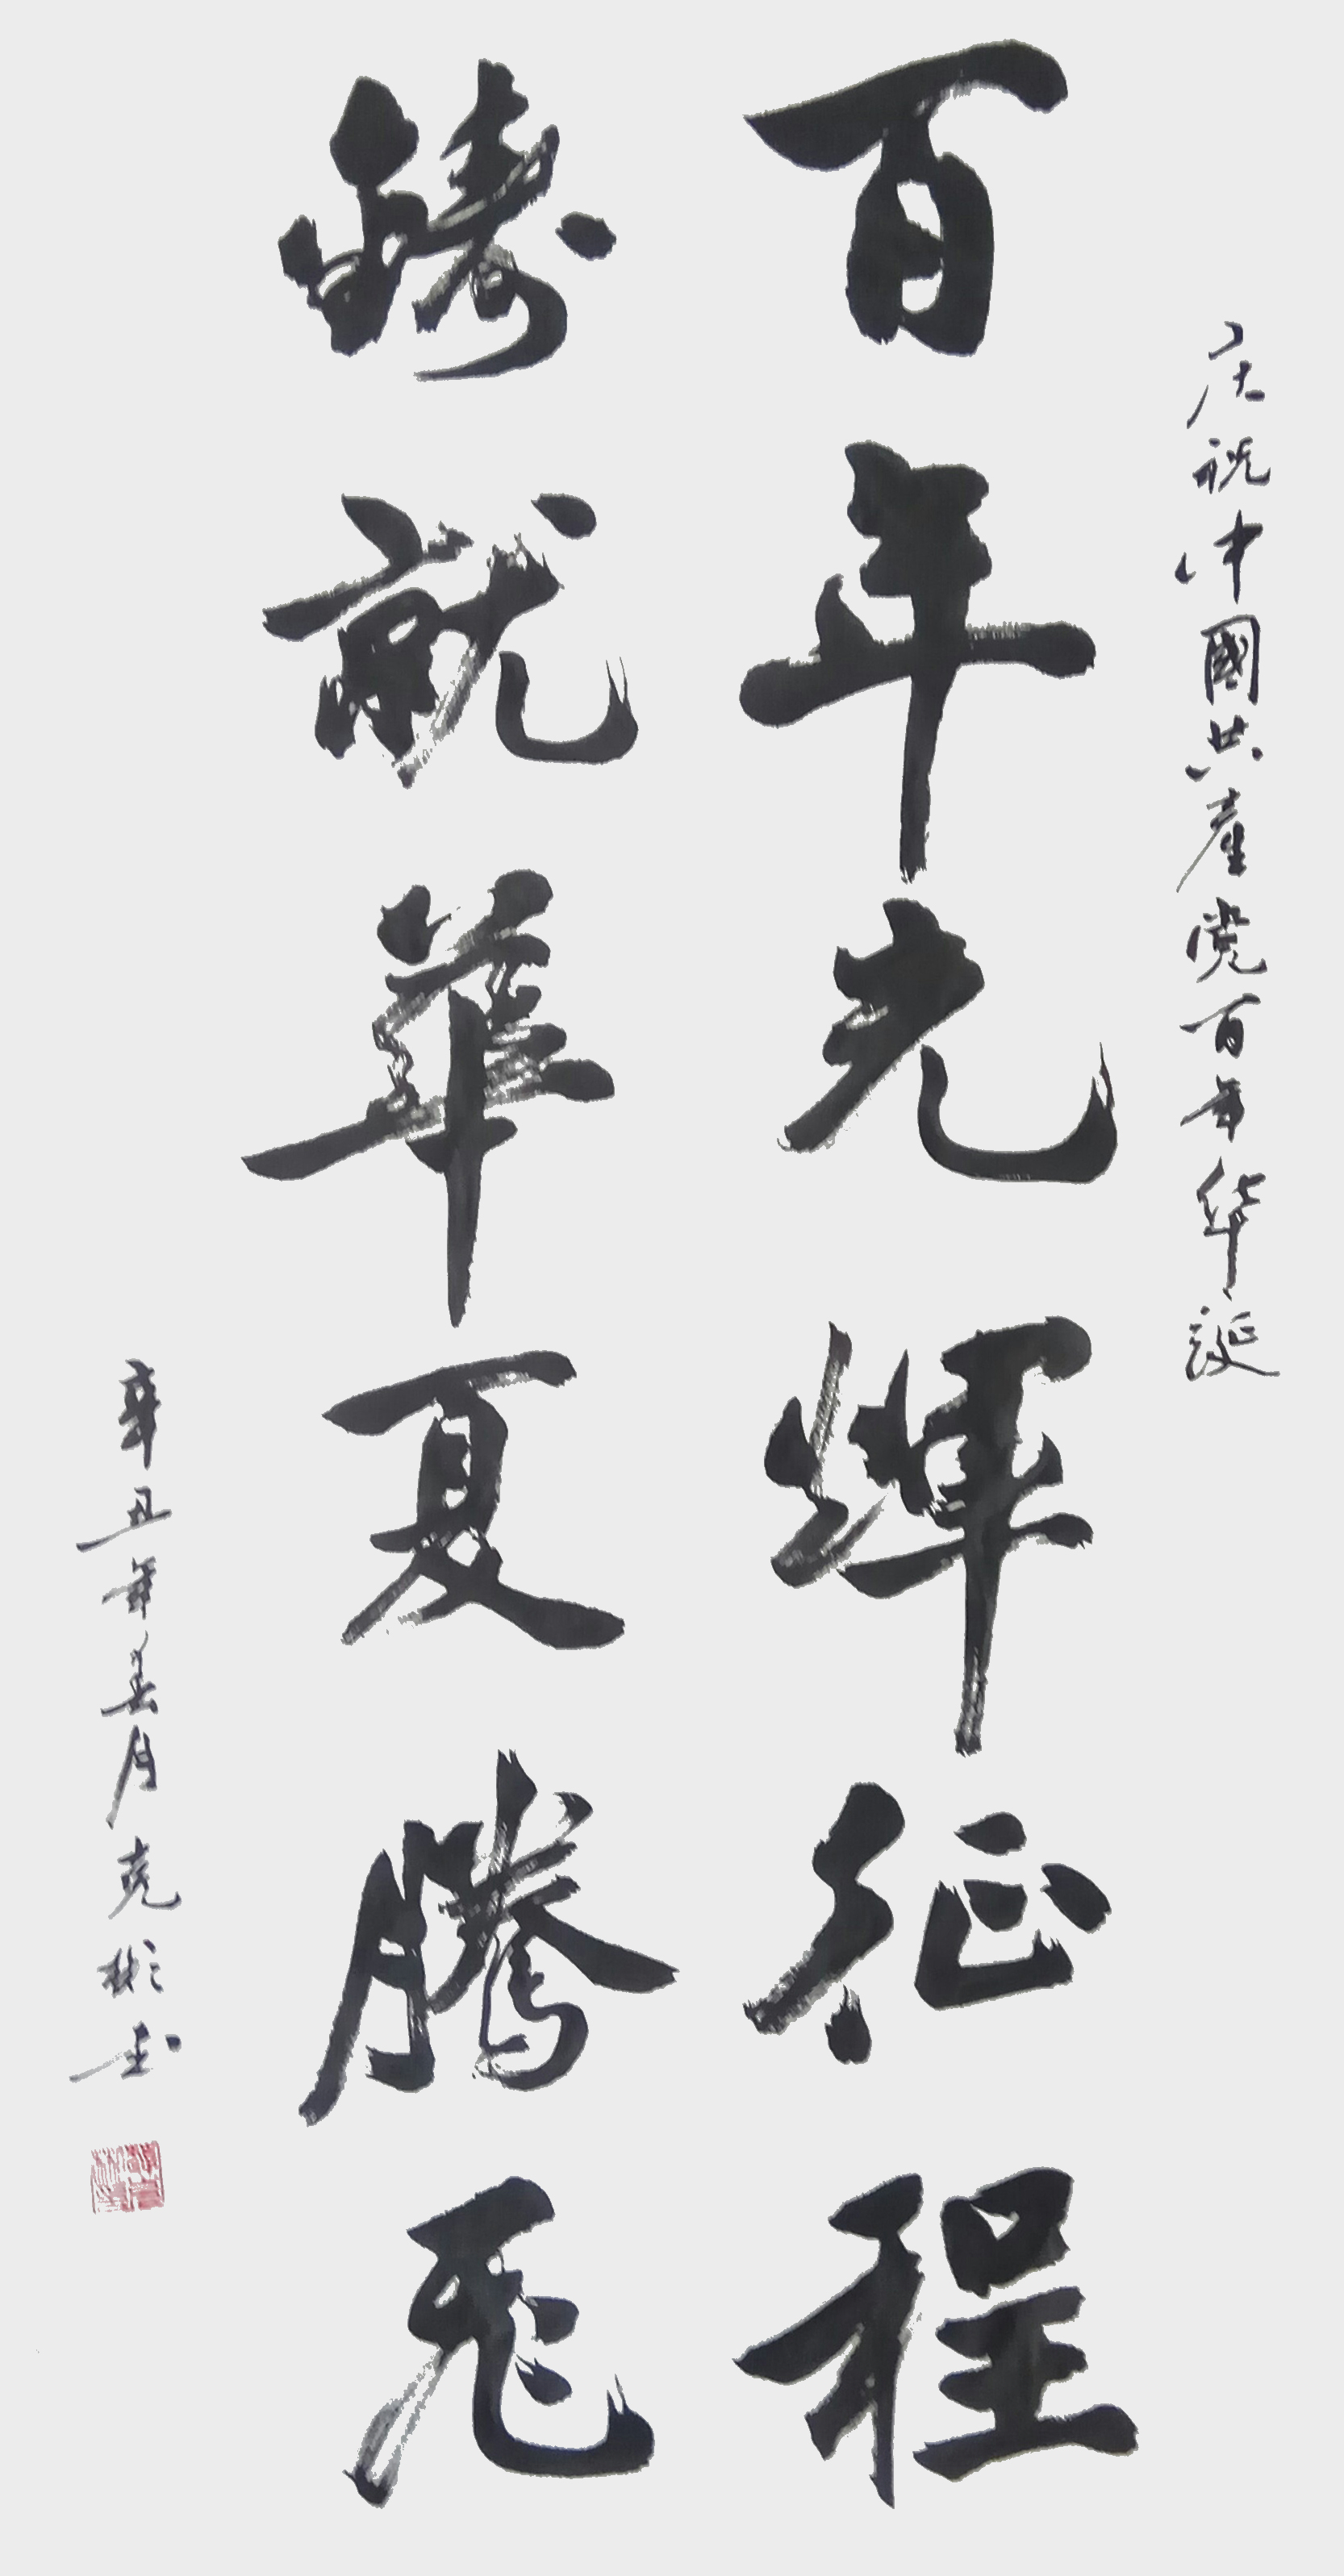 庆祝中國共產党百年华誕
百年光輝征程
鑄就華夏腾飛
辛丑年春月克彬书